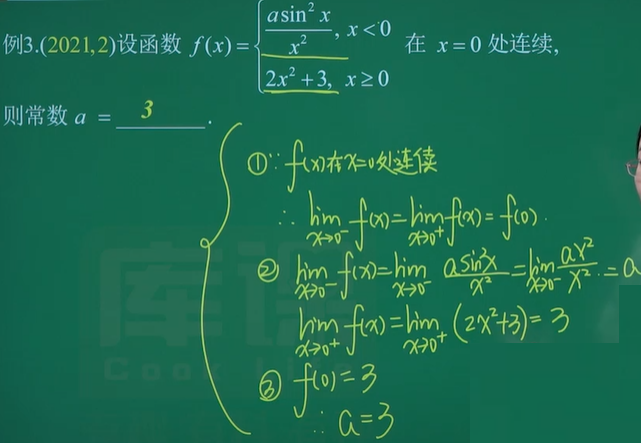 例3.(2021,2)设函数 f(x)={ a sin²x/x², x<0 ; 2x²+3, x≥0 在 x=0 处连续,
则常数 a = 3 .
①∵ f(x)在x=0处连续
∴ lim x→0⁻ f(x)=lim x→0⁺ f(x)= f(0).
② lim x→0⁻ f(x)=lim x→0⁻ a sin²x/x² =lim x→0⁻ ax²/x² = a
lim x→0⁺ f(x)=lim x→0⁺ (2x²+3)= 3
③ f(0)=3
∴ a=3
库课
Cook